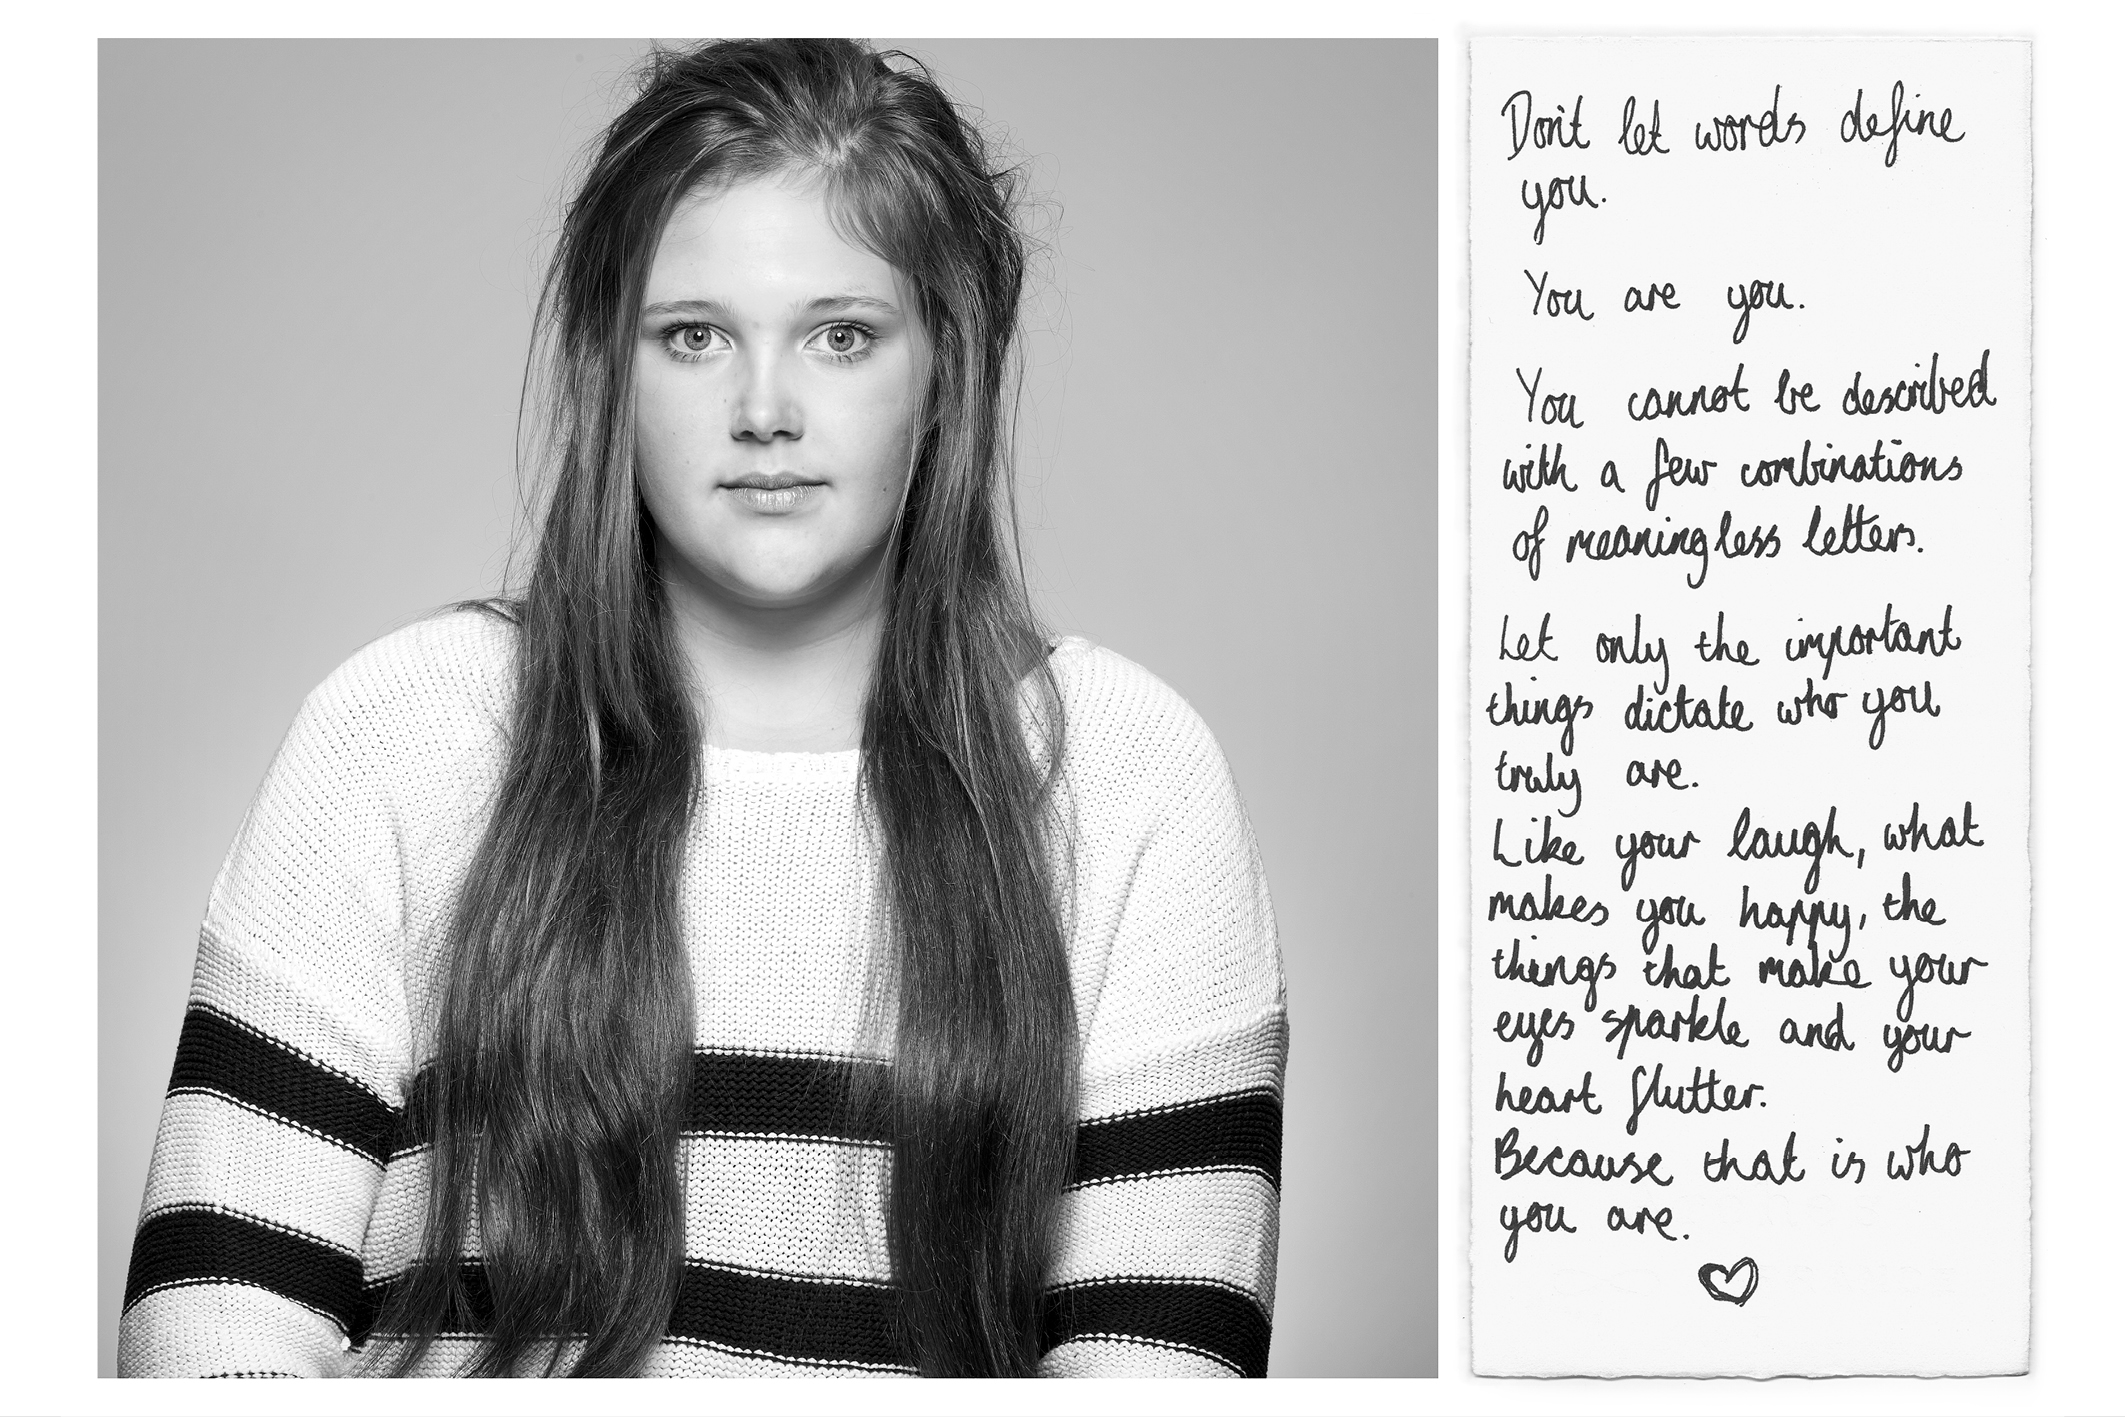 Don't let words define
you.
You are you.
You cannot be described
with a few combinations
of meaningless letters.
Let only the important
things dictate who you
truly are.
Like your laugh, what
makes you happy, the
things that make your
eyes sparkle and your
heart flutter.
Because that is who
you are.